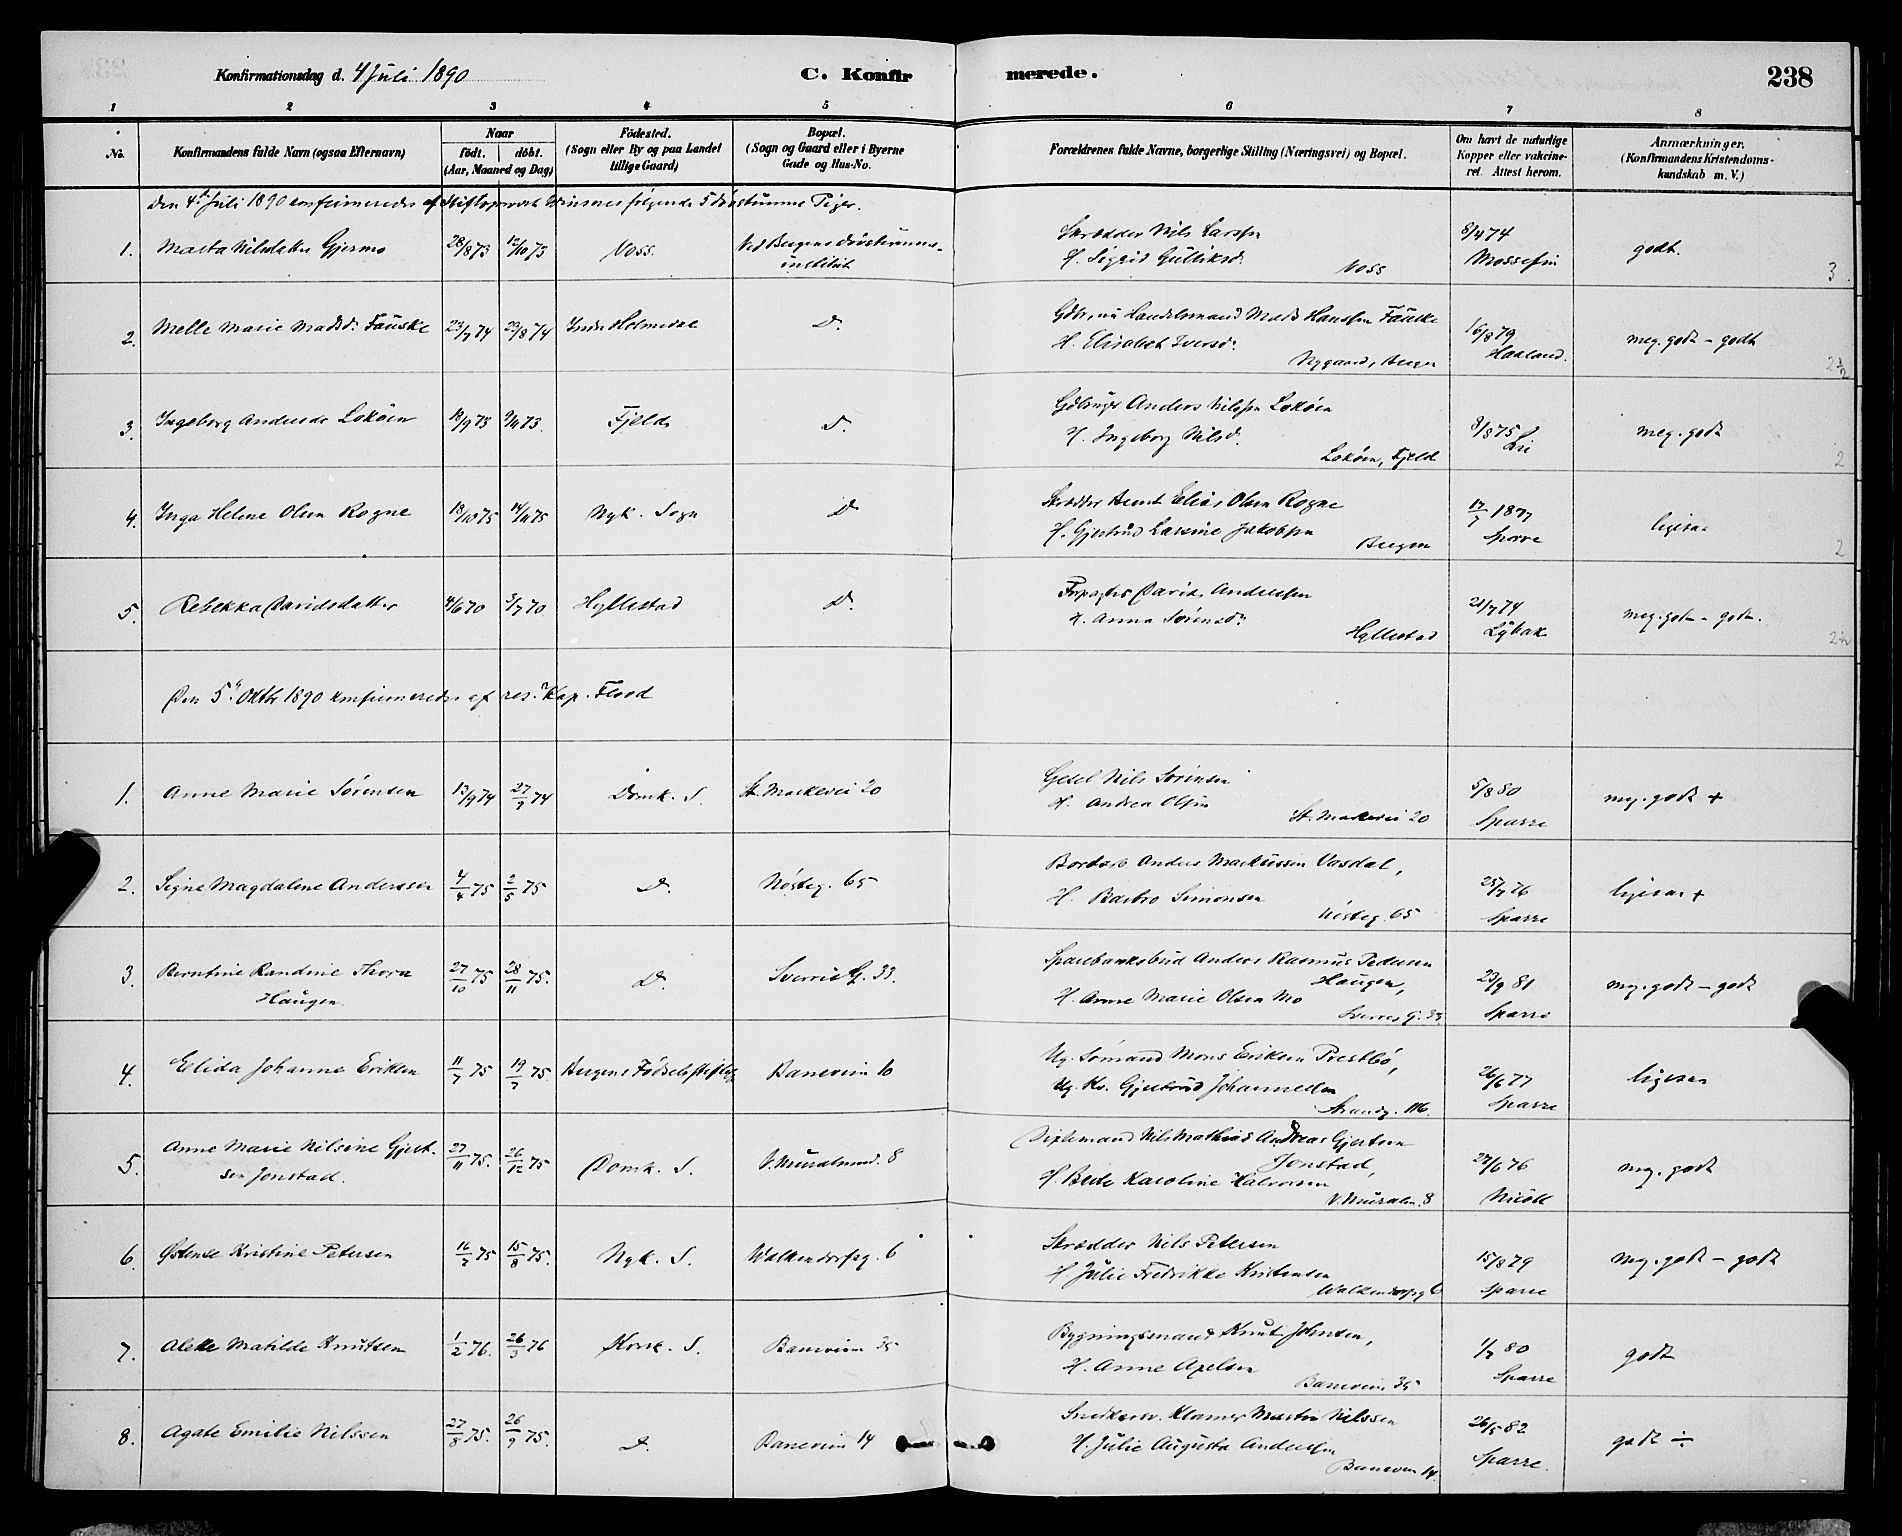 Konfirmationsdag d. 4 Juli 1890
C. Konfirmerede.
238
1 2 3 4 5 6 7 8
No.
Konfirmandens fulde Navn (ogsaa Efternavn)
Naar
födt. döbt.
(Aar, Maaned og Dag)
Födested.
(Sogn eller By og paa Landet
tillige Gaard)
Bopæl.
(Sogn og Gaard eller i Byerne
Gade og Hus-No.
Forældrenes fulde Navne, borgerlige Stilling (Næringsvei) og Bopæl.
Om havt de naturlige
Kopper eller vakcine-
ret. Attest herom.
Anmærkninger.
(Konfirmandens Kristendoms-
kundskab m. V.)
Den 4de Juli 1890 konfirmeredes af Stiftsprovst følgende 5 døvstumme Piger.
1. Marta Nilsdatter Gjermo 28/8 73 12/10 73 Voss. Ved Bergens døvstumme-
institut
Skrædder Nils Larsen
H. Sigrid Gulliksd.
Voss
8/4 74
godt.
3
2. Molle Marie Madsd. Fauske 23/7 74 29/8 74 Indre Holmedal D.
Gdbr, nu Handelsmand Mads Hanssen Fauske
H. Elisabet Iversd.
Nygaard, Bergen
16/8 79
Haaland.
meg. godt - godt
2½
3. Ingeborg Andersdr Lokøen 18/9 73 9/11 73. Fjeld D.
Gdbruger Anders Nilssen Lokøen
H. Ingeborg Nilsd.
Lokøen, Fjeld
8/8 75
Lie
meg. godt
2
4. Inga Helene Olsen Rogne 18/10 75 14/11 75 Nyk. Sogn D
Skrædder Bernt Elias Olsen Rogne
H. Gjertrud Lavsine Jakobsen
Bergen
17/7 1877
Sparre
ligesaa
2
5. Rebekka Davidsdatter 4/6 70 3/7 70 Hyllestad D.
Forpagter David Anderssen
H. Anna Sørensdr
Hyllestad
21/7 74
meg. godt - godt.
2½
Den 5te Oktbr 1890 konfirmeredes af res. Kap. Flood
1. Anne Marie Sørensen 13/9 74 27/9 74 Domk. S. St. Markevei 20
Gesel Nils Sørensen
H. Andrea Olsen
St. Markevei 20
5/8 80
Sparre
mg. godt +
2. Signe Magdalene Anderssen 4/4 75 2/5 75 D. Nøsteg. 65
Bordarb. Anders Markussen Vasdal,
H. Barbro Simonsen
Nøsteg. 65
25/7 76
Sparre
ligesaa +
3. Berntine Randine Thora
Haugen.
27/10 75 28/11 75. D. Sverres G. 33.
Sparebanksbud Anders Rasmus Pedersen
Haugen,
H. Anne Marie Olsen Mo
Sverres G. 33
23/9 81
Sparre
mg. godt - godt
4. Elida Johanne Eriksen 11/7 75 19/7 75. Bergens Fødselsstiftelse Baneveien 10
Ug. Sømand Mons Eriksen Prestbø,
Ug. Kv. Gjertrud Johannessen
Strandg. 116.
26/6 77
Sparre
ligesaa
5. Anne Marie Nilsine Gjert-
sen Jonstad.
27/11 75. 26/12 75 Domk. S. V. Muralmd. 8
Nils Mathias Andreas Gjertsen
Jonstad,
H. Berte Karoline Halvorsen
V. Muralm. 8
27/6 76
mg. godt
6. Østense Kristine Petersen 16/7 75 15/8 75. Nyk. S. Walkendorfsg. 6
Skrædder Nils Petersen
H Julie Fredrikke Kristensen
Walkendorfsg 6
15/8 79
Sparre
mg. godt - godt
7. Alette Matilde Knutsen 1/2 76. 26/3 76 Korsk. S. Baneveien 35
Bygningsmand Knut Johnsen,
H. Anne Axelsen
Baneveien 35
1/7 80
Sparre
godt
8. Agate Emilie Nilssen 27/8 75. 26/9 75. D. Baneveien 14
Snedkersv. Klamer Martin Nilssen
H. Julie Augusta Anderssen
Baneveien 14.
26/5 82
Sparre.
godt ÷